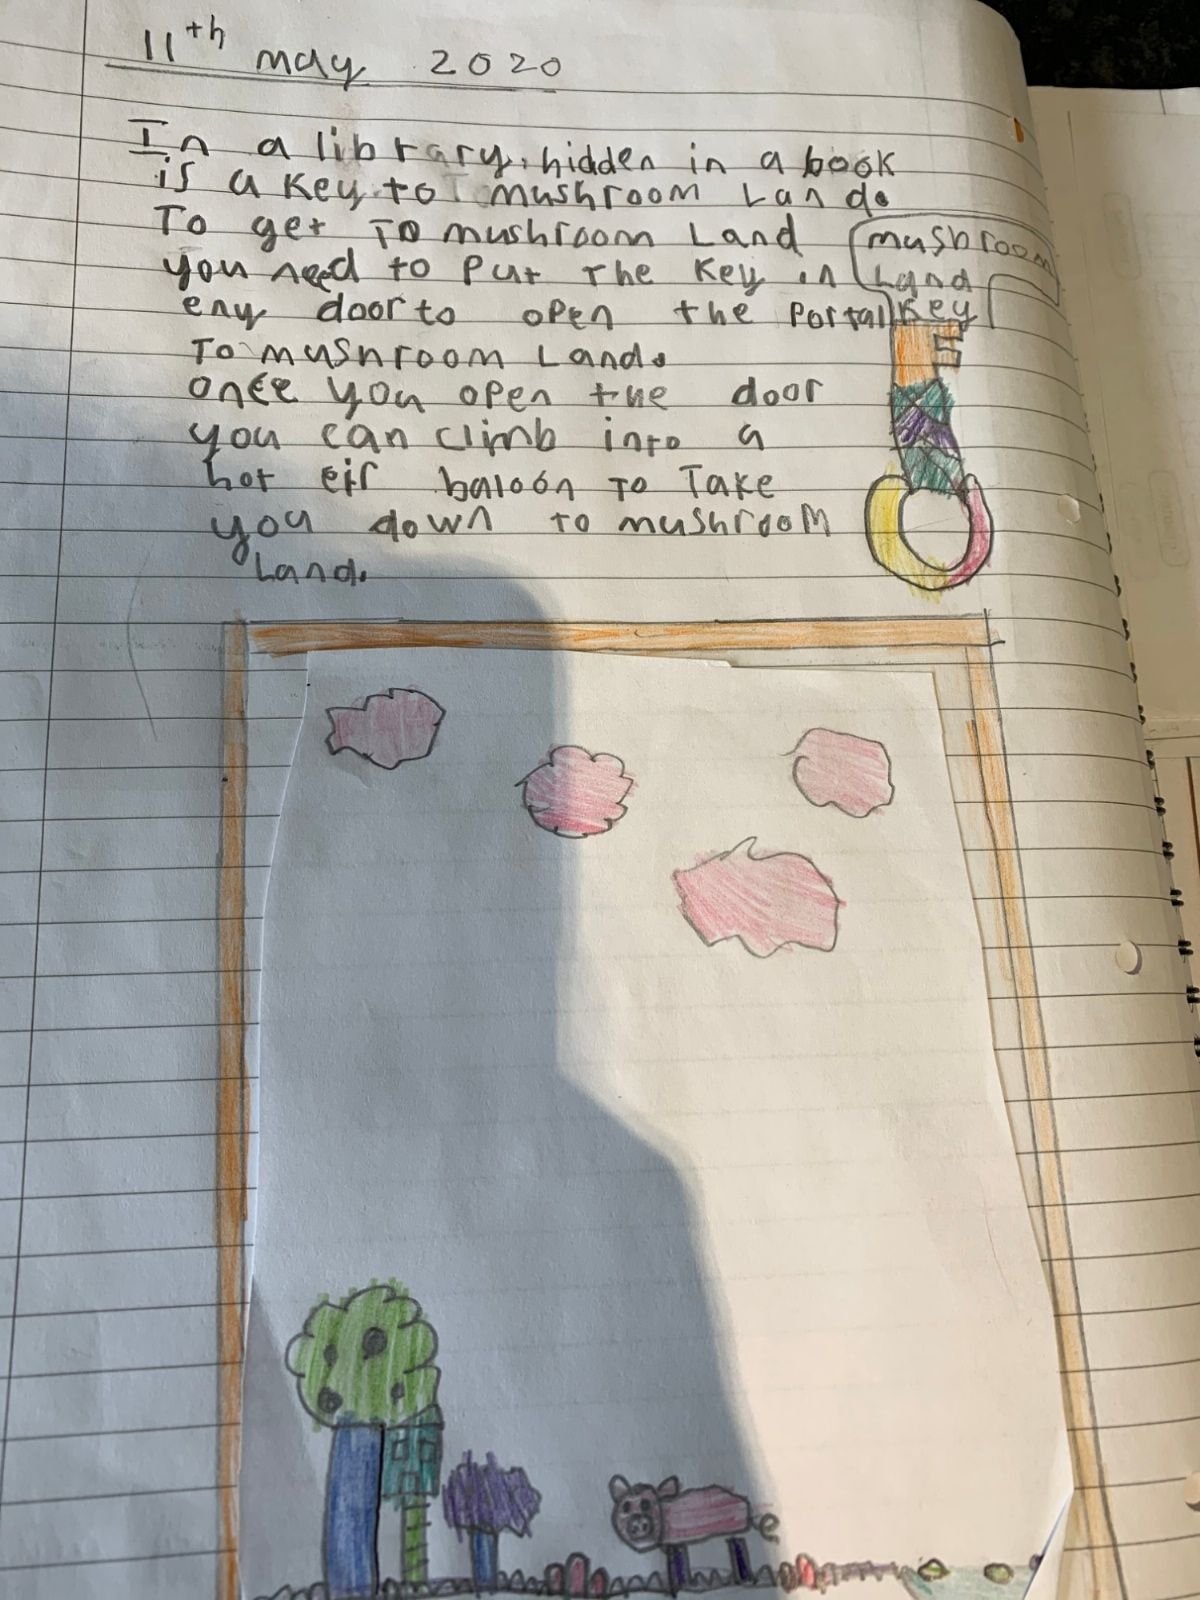 11th may 2020
In a library, hidden in a book
is a key to mushroom Land.
To get To mushroom Land
you need to put The key in
eny door to open the portal
To mushroom Land.
once you open the door
you can climb into a
hot eir baloon To Take
you down to mushroom
Land.
mushroom
Land
key